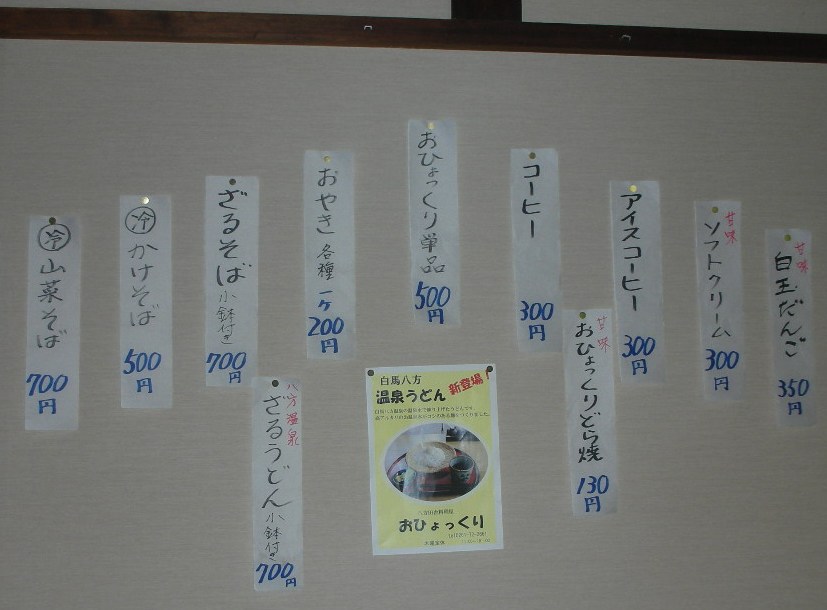 甘味
白玉だんご
350円
甘味
ソフトクリーム
300円
アイスコーヒー
300円
甘味
おひょっくりどら焼
130円
コーヒー
300円
おひょっくり単品
500円
おやき 各種 一ヶ
200円
ざるそば 小鉢付き
700円
八方温泉
ざるうどん 小鉢付き
700円
冷 かけそば
500円
冷 山菜そば
700円
白馬八方
温泉うどん 新登場!
おひょっくり